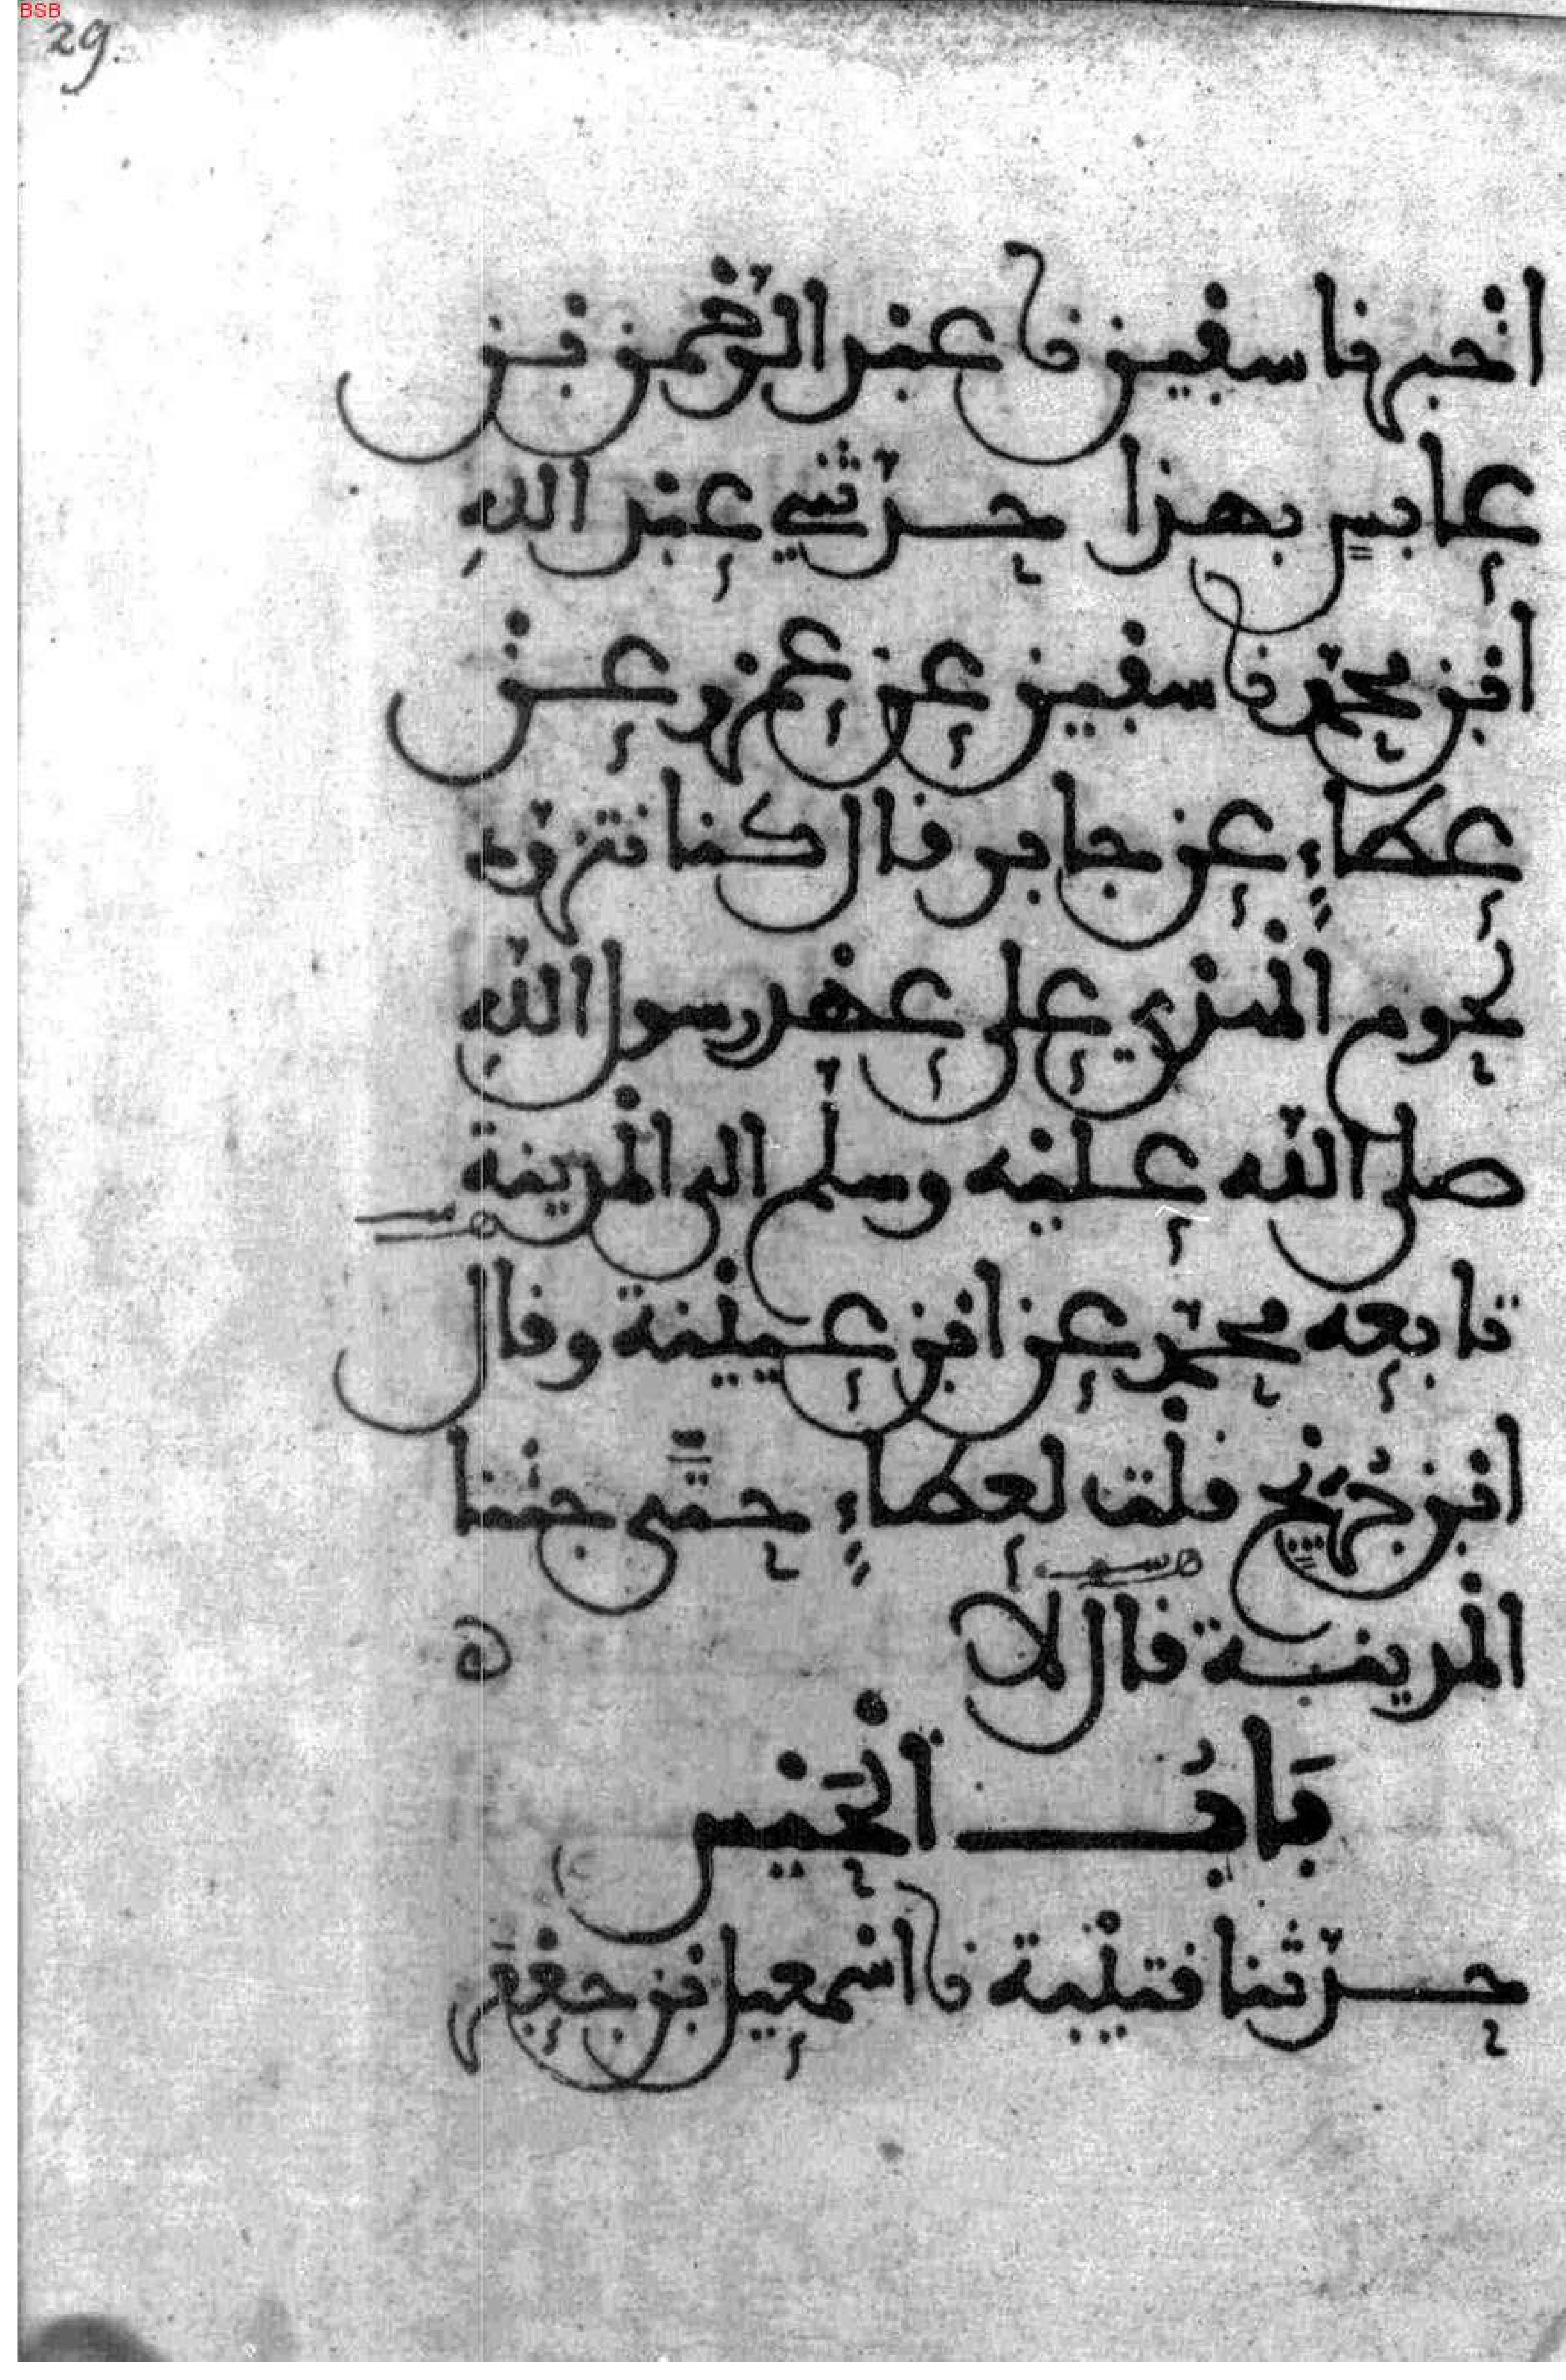 BSB
29.
اخبرنا سفين نا عبد الرحمن بن
عابس بهذا حدثني عبد الله
ابن محمد نا سفين عن عمرو عن
عطاءٍ عن جابر قال كنا نتزود
لحوم الهدي على عهد رسول الله
صلى الله عليه وسلم الى المدينة
تابعه محمد عن ابن عيينة وقال
ابن جريج قلت لعطاءٍ حتى جئنا
المدينة قال لا ه
بَابُ الحَيْس
حدثنا قتيبة نا اسمعيل بن جعفر